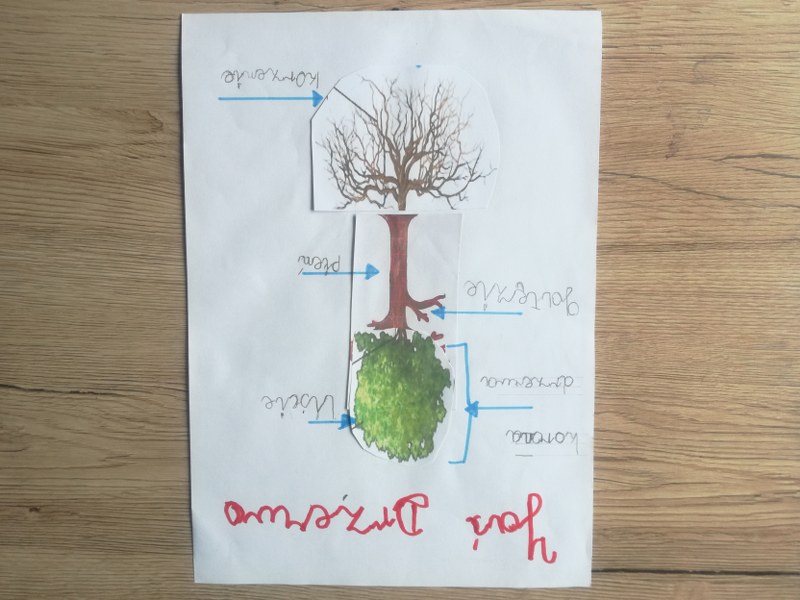 Jaś Drzewo
korona
drzewa
liście
gałęzie
pień
korzenie